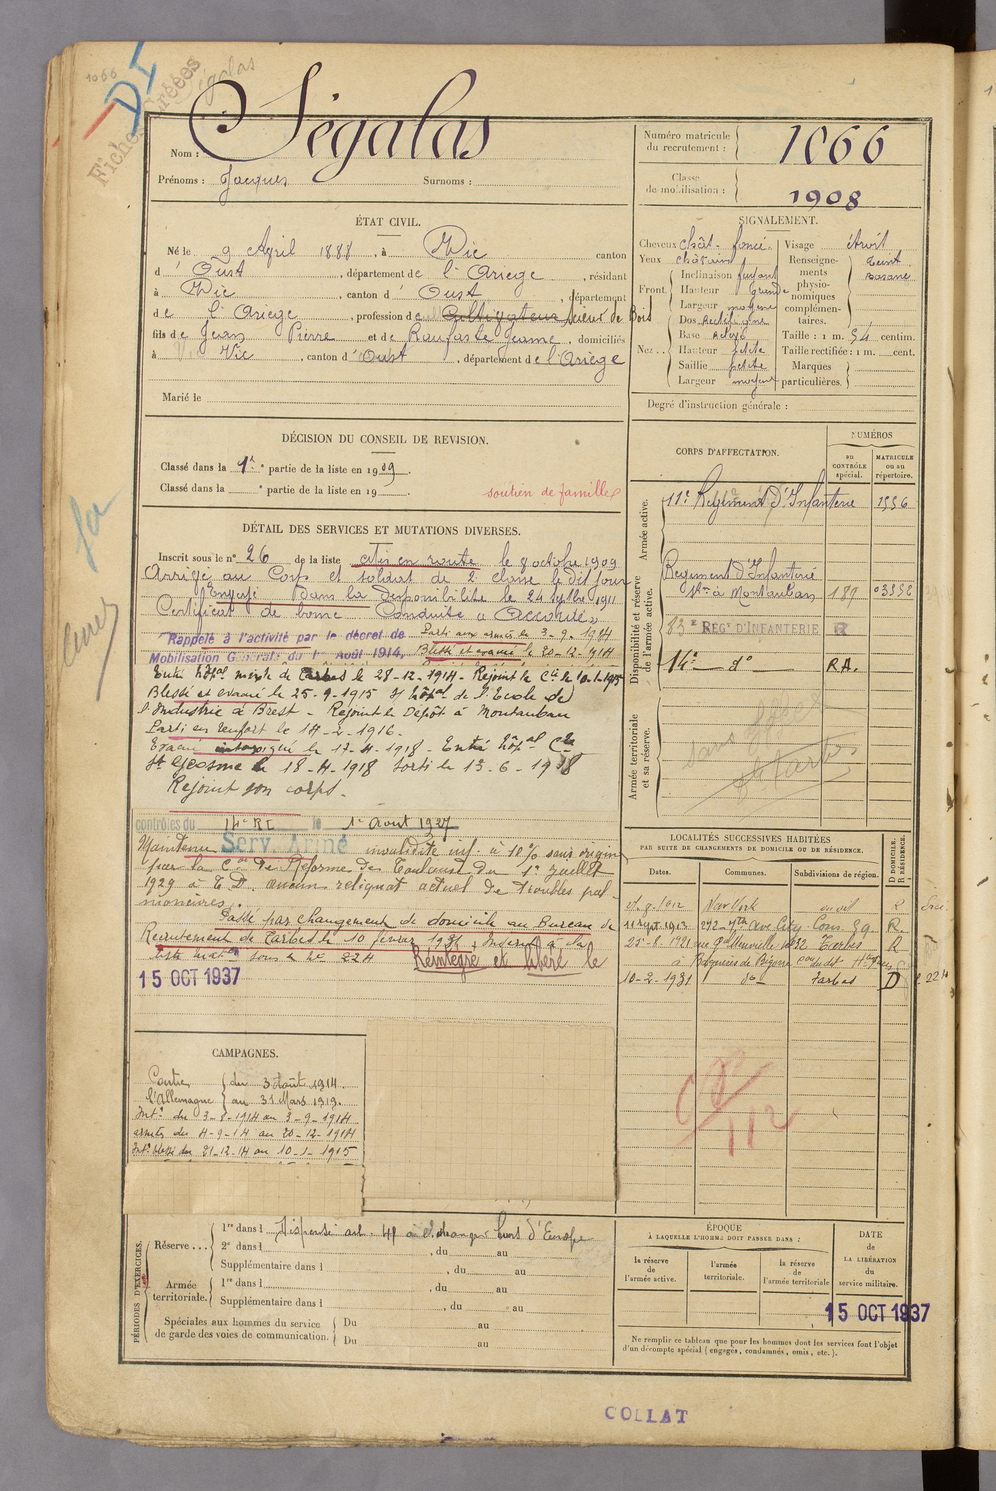 1066
DI
Fiches Créées
Ségalas
Nom : Ségalas
Prénoms : Jacques Surnoms :
Numéro matricule du recrutement : 1066
Classe de mobilisation : 1908
ÉTAT CIVIL.
Né le 9 Avril 1888, à Vic canton
d'Oust, département de l'Ariège, résidant
à Vic, canton d'Oust, département
de l'Ariège, profession de Cultivateur Scieur de Bois
fils de Jean Pierre et de Raufaste Jeanne, domiciliés
à Vic, canton d'Oust, département de l'Ariège
Marié le
SIGNALEMENT.
Cheveux chât. foncé.
Yeux châtain
Front. Inclinaison fuyant
Hauteur grande
Largeur moyenne
Nez. Dos rectiligne
Base relevé
Hauteur petite
Saillie petite
Largeur moyenne
Visage étroit
Renseignements physionomiques complémentaires. teint basané
Taille : 1 m. 54 centim.
Taille rectifiée : 1 m. cent.
Marques particulières.
Degré d'instruction générale :
DÉCISION DU CONSEIL DE REVISION.
Classé dans la 1e partie de la liste en 1909.
Classé dans la ° partie de la liste en 19 .
soutien de famille
DÉTAIL DES SERVICES ET MUTATIONS DIVERSES.
Inscrit sous le n° 26 de la liste Mis en route le 8 octobre 1909
Arrivé au Corps et soldat de 2e classe le dit jour
Envoyé dans la disponibilité le 24 septbre 1911
Certificat de bonne Conduite "Accordé"
Rappelé à l'activité par le décret de Parti aux armées le 3-9-1914
Mobilisation Générale du 1er Août 1914, Blessé et évacué le 20-12-1914
Entré hôpal mixte de Tarbes le 28-12-1914 - Rejoint le Cie le 10-1-1915
Blessé et évacué le 25-9-1915 hôpal de l'Ecole de
l'Industrie à Brest - Rejoint le Dépôt à Montauban
Parti en renfort le 14-2-1916.
Evacué intoxiqué le 17-4-1918 - Entré hôpal
St Geosme le 18-4-1918 Sorti le 13-6-1918
Rejoint son corps.
contrôles du 14e RI le 1e Août 1927
Maintenu Serv. Armé invalidité inf. à 10% sans origine
par la Con de Réforme de Toulouse du 1er Juillet
1929 à T.D. aucun reliquat actuel de troubles pulmonaires.
Passé par changement de domicile au Bureau de
Recrutement de Tarbes le 10 février 1931, Inséré à la
liste matle sous le No 224 Réintégré et libéré le
15 OCT 1937
CORPS D'AFFECTATION.
NUMÉROS
au CONTRÔLE spécial.
MATRICULE ou au répertoire.
Armée active.
11e Régiment d'Infanterie 1556
Disponibilité et réserve de l'armée active.
Régiment d'Infanterie
stné à Montauban 189 03352
83e REGt D'INFANTERIE
14e do RA.
Armée territoriale et sa réserve.
sans affect
Tarbes
LOCALITÉS SUCCESSIVES HABITÉES
PAR SUITE DE CHANGEMENTS DE DOMICILE OU DE RÉSIDENCE.
Dates. Communes. Subdivisions de région. D DOMICILE. R RÉSIDENCE.
New York R
11 sept 1913 242-7th Ave City Cons. Gal R.
25-8-1921 Tarbes R
à Bagnères de Bigorre
10-2-1931 do Tarbes D 224
CAMPAGNES.
Contre l'Allemagne du 3 Août 1914 au 31 Mars 1919.
Intr du 3-8-1914 au 3-9-1914
armées du 4-9-14 au 20-12-1914
Intr blessé du 21-12-14 au 10-1-1915
112
PÉRIODES D'EXERCICES.
Réserve... 1re dans l Dispensé art. 48 à l'étranger hors d'Europe
2e dans l , du au
Supplémentaire dans l , du au
Armée territoriale. 1re dans l , du au
Supplémentaire dans l , du au
Spéciales aux hommes du service de garde des voies de communication. Du au
Du au
ÉPOQUE
À LAQUELLE L'HOMME DOIT PASSER DANS :
la réserve de l'armée active.
l'armée territoriale.
la réserve de l'armée territoriale
DATE DE LA LIBÉRATION du service militaire.
15 OCT 1937
Ne remplir ce tableau que pour les hommes dont les services font l'objet
d'un décompte spécial (engagés, condamnés, omis, etc.).
COLLAT